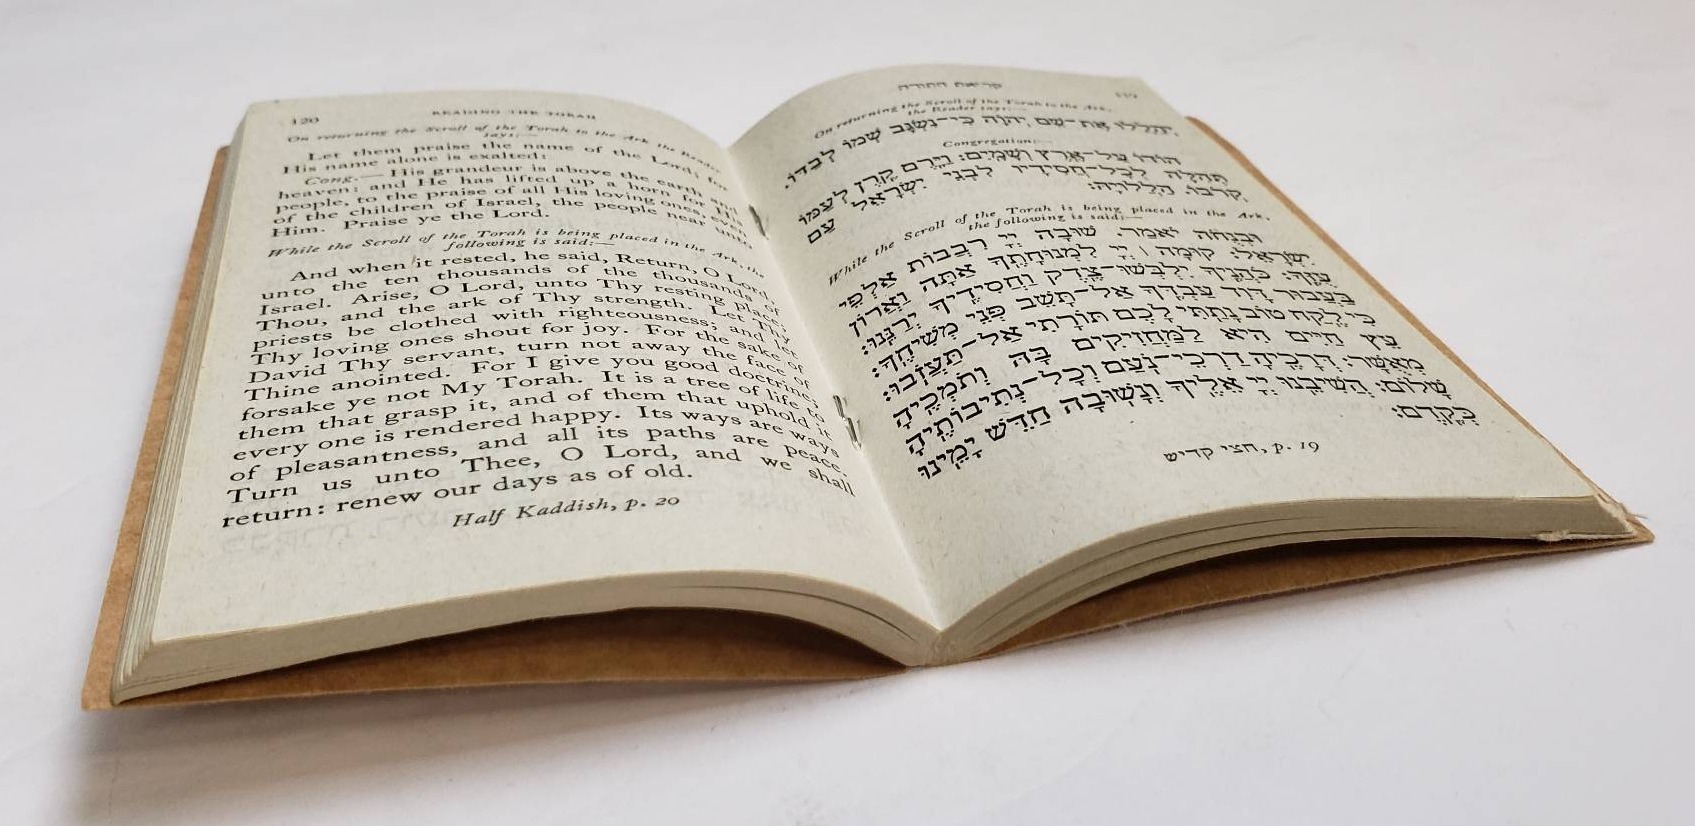 120
READING THE TORAH
On returning the Scroll of the Torah to the Ark the Reader
says:—
Let them praise the name of the Lord; for
His name alone is exalted:
Cong.— His grandeur is above the earth and
heaven: and He has lifted up a horn for His
people, to the praise of all His loving ones, even
of the children of Israel, the people near unto
Him. Praise ye the Lord.
While the Scroll of the Torah is being placed in the Ark, the
following is said:—
And when it rested, he said, Return, O Lord,
unto the ten thousands of the thousands of
Israel. Arise, O Lord, unto Thy resting place;
Thou, and the ark of Thy strength. Let Thy
priests be clothed with righteousness; and let
Thy loving ones shout for joy. For the sake of
David Thy servant, turn not away the face of
Thine anointed. For I give you good doctrine;
forsake ye not My Torah. It is a tree of life to
them that grasp it, and of them that uphold it
every one is rendered happy. Its ways are ways
of pleasantness, and all its paths are peace.
Turn us unto Thee, O Lord, and we shall
return: renew our days as of old.
Half Kaddish, p. 20
קריאת התורה
119
On returning the Scroll of the Torah to the Ark,
the Reader says:—
יְהַלְלוּ אֶת־שֵׁם יְהֹוָה כִּי־נִשְׂגָּב שְׁמוֹ לְבַדּוֹ.
Congregation:—
הוֹדוֹ עַל־אֶרֶץ וְשָׁמָיִם: וַיָּרֶם קֶרֶן לְעַמּוֹ
תְּהִלָּה לְכָל־חֲסִידָיו לִבְנֵי יִשְׂרָאֵל עַם
קְרֹבוֹ. הַלְלוּיָהּ:
While the Scroll of the Torah is being placed in the Ark,
the following is said:—
וּבְנֻחֹה יֹאמַר. שׁוּבָה יְיָ רִבְבוֹת אַלְפֵי
יִשְׂרָאֵל: קוּמָה יְיָ לִמְנוּחָתֶךָ אַתָּה וַאֲרוֹן
עֻזֶּךָ: כֹּהֲנֶיךָ יִלְבְּשׁוּ־צֶדֶק וַחֲסִידֶיךָ יְרַנֵּנוּ:
בַּעֲבוּר דָּוִד עַבְדֶּךָ אַל־תָּשֵׁב פְּנֵי מְשִׁיחֶךָ:
כִּי לֶקַח טוֹב נָתַתִּי לָכֶם תּוֹרָתִי אַל־תַּעֲזֹבוּ:
עֵץ חַיִּים הִיא לַמַּחֲזִיקִים בָּהּ וְתֹמְכֶיהָ
מְאֻשָּׁר: דְּרָכֶיהָ דַרְכֵי־נֹעַם וְכָל־נְתִיבוֹתֶיהָ
שָׁלוֹם: הֲשִׁיבֵנוּ יְיָ אֵלֶיךָ וְנָשׁוּבָה חַדֵּשׁ יָמֵינוּ
כְּקֶדֶם:
חצי קדיש, p. 19